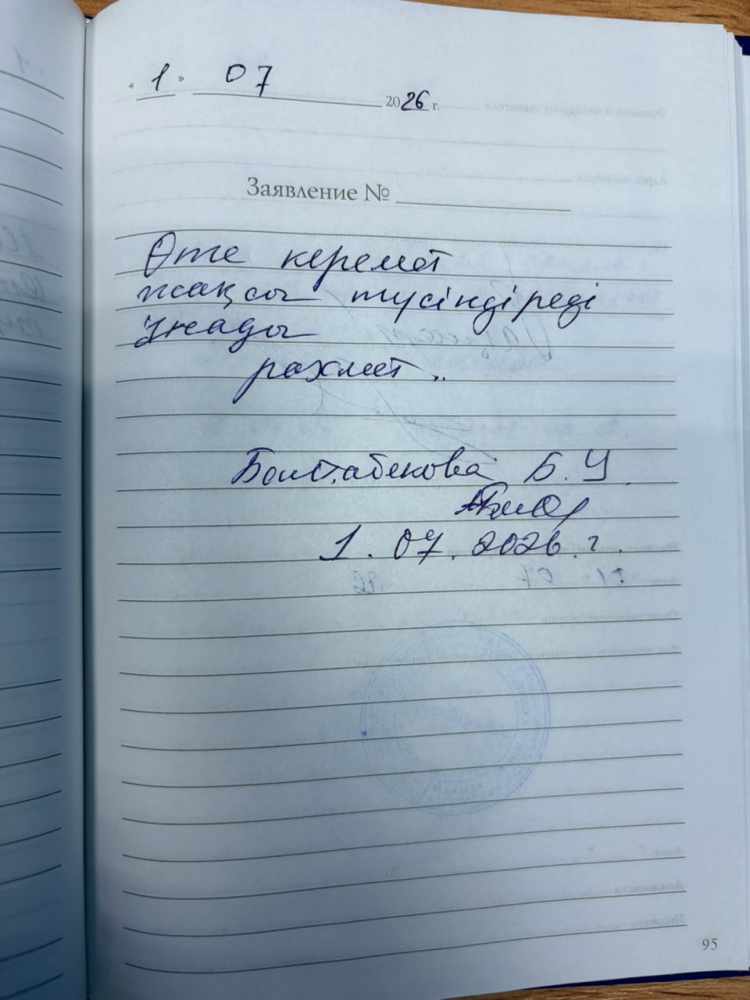 « 1 » 07 2026 г.
Заявление №
Өте керемет
жақсы түсіндіреді
Ұнады
рахмет..
Болтабекова Б.У.
1.07.2026.г.
95